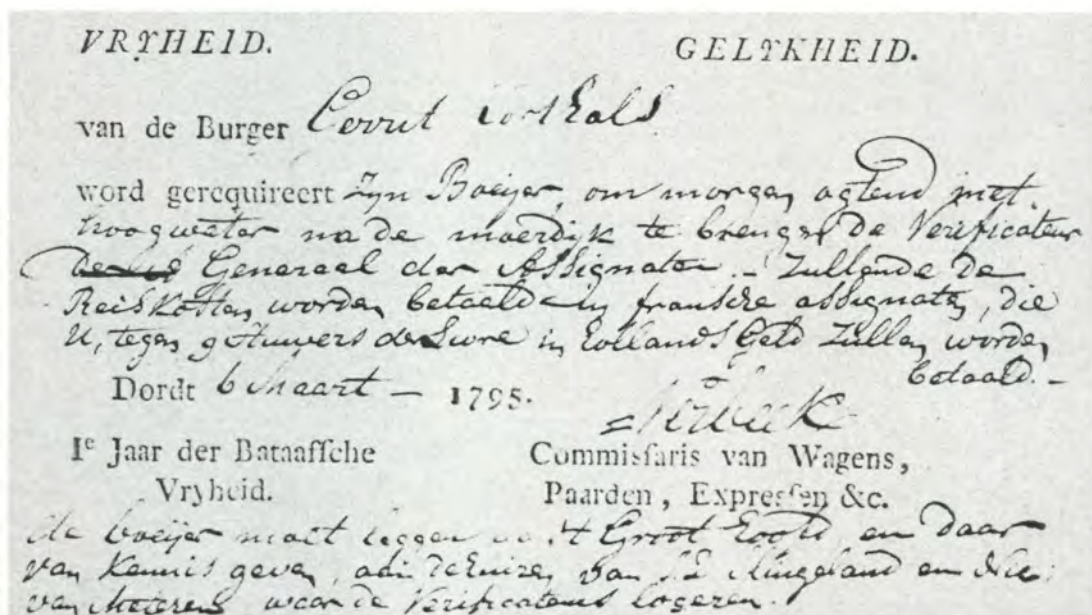 VRYHEID. GELYKHEID.
van de Burger
word gerequireert zyn Boeijer, om morgen ogtend met
hoogwater na de moerdijk te brengen de Verificateur
Generael der Assignaten. - Zullende de
Reiskosten worden betaald in fransche assignaten, die
U, tegen 9 stuivers de Livre in Hollands Geld zullen worden
betaald. -
Dordt 6 Maart - 1795.
Ie Jaar der Bataaffche Commisfaris van Wagens,
Vryheid. Paarden, Expresfen &c.
de boeijer moet leggen 't Groot Hoofd, en daar
van Kennis geven, aan de huizen van en
van Meteren waar de Verificateurs logeren.